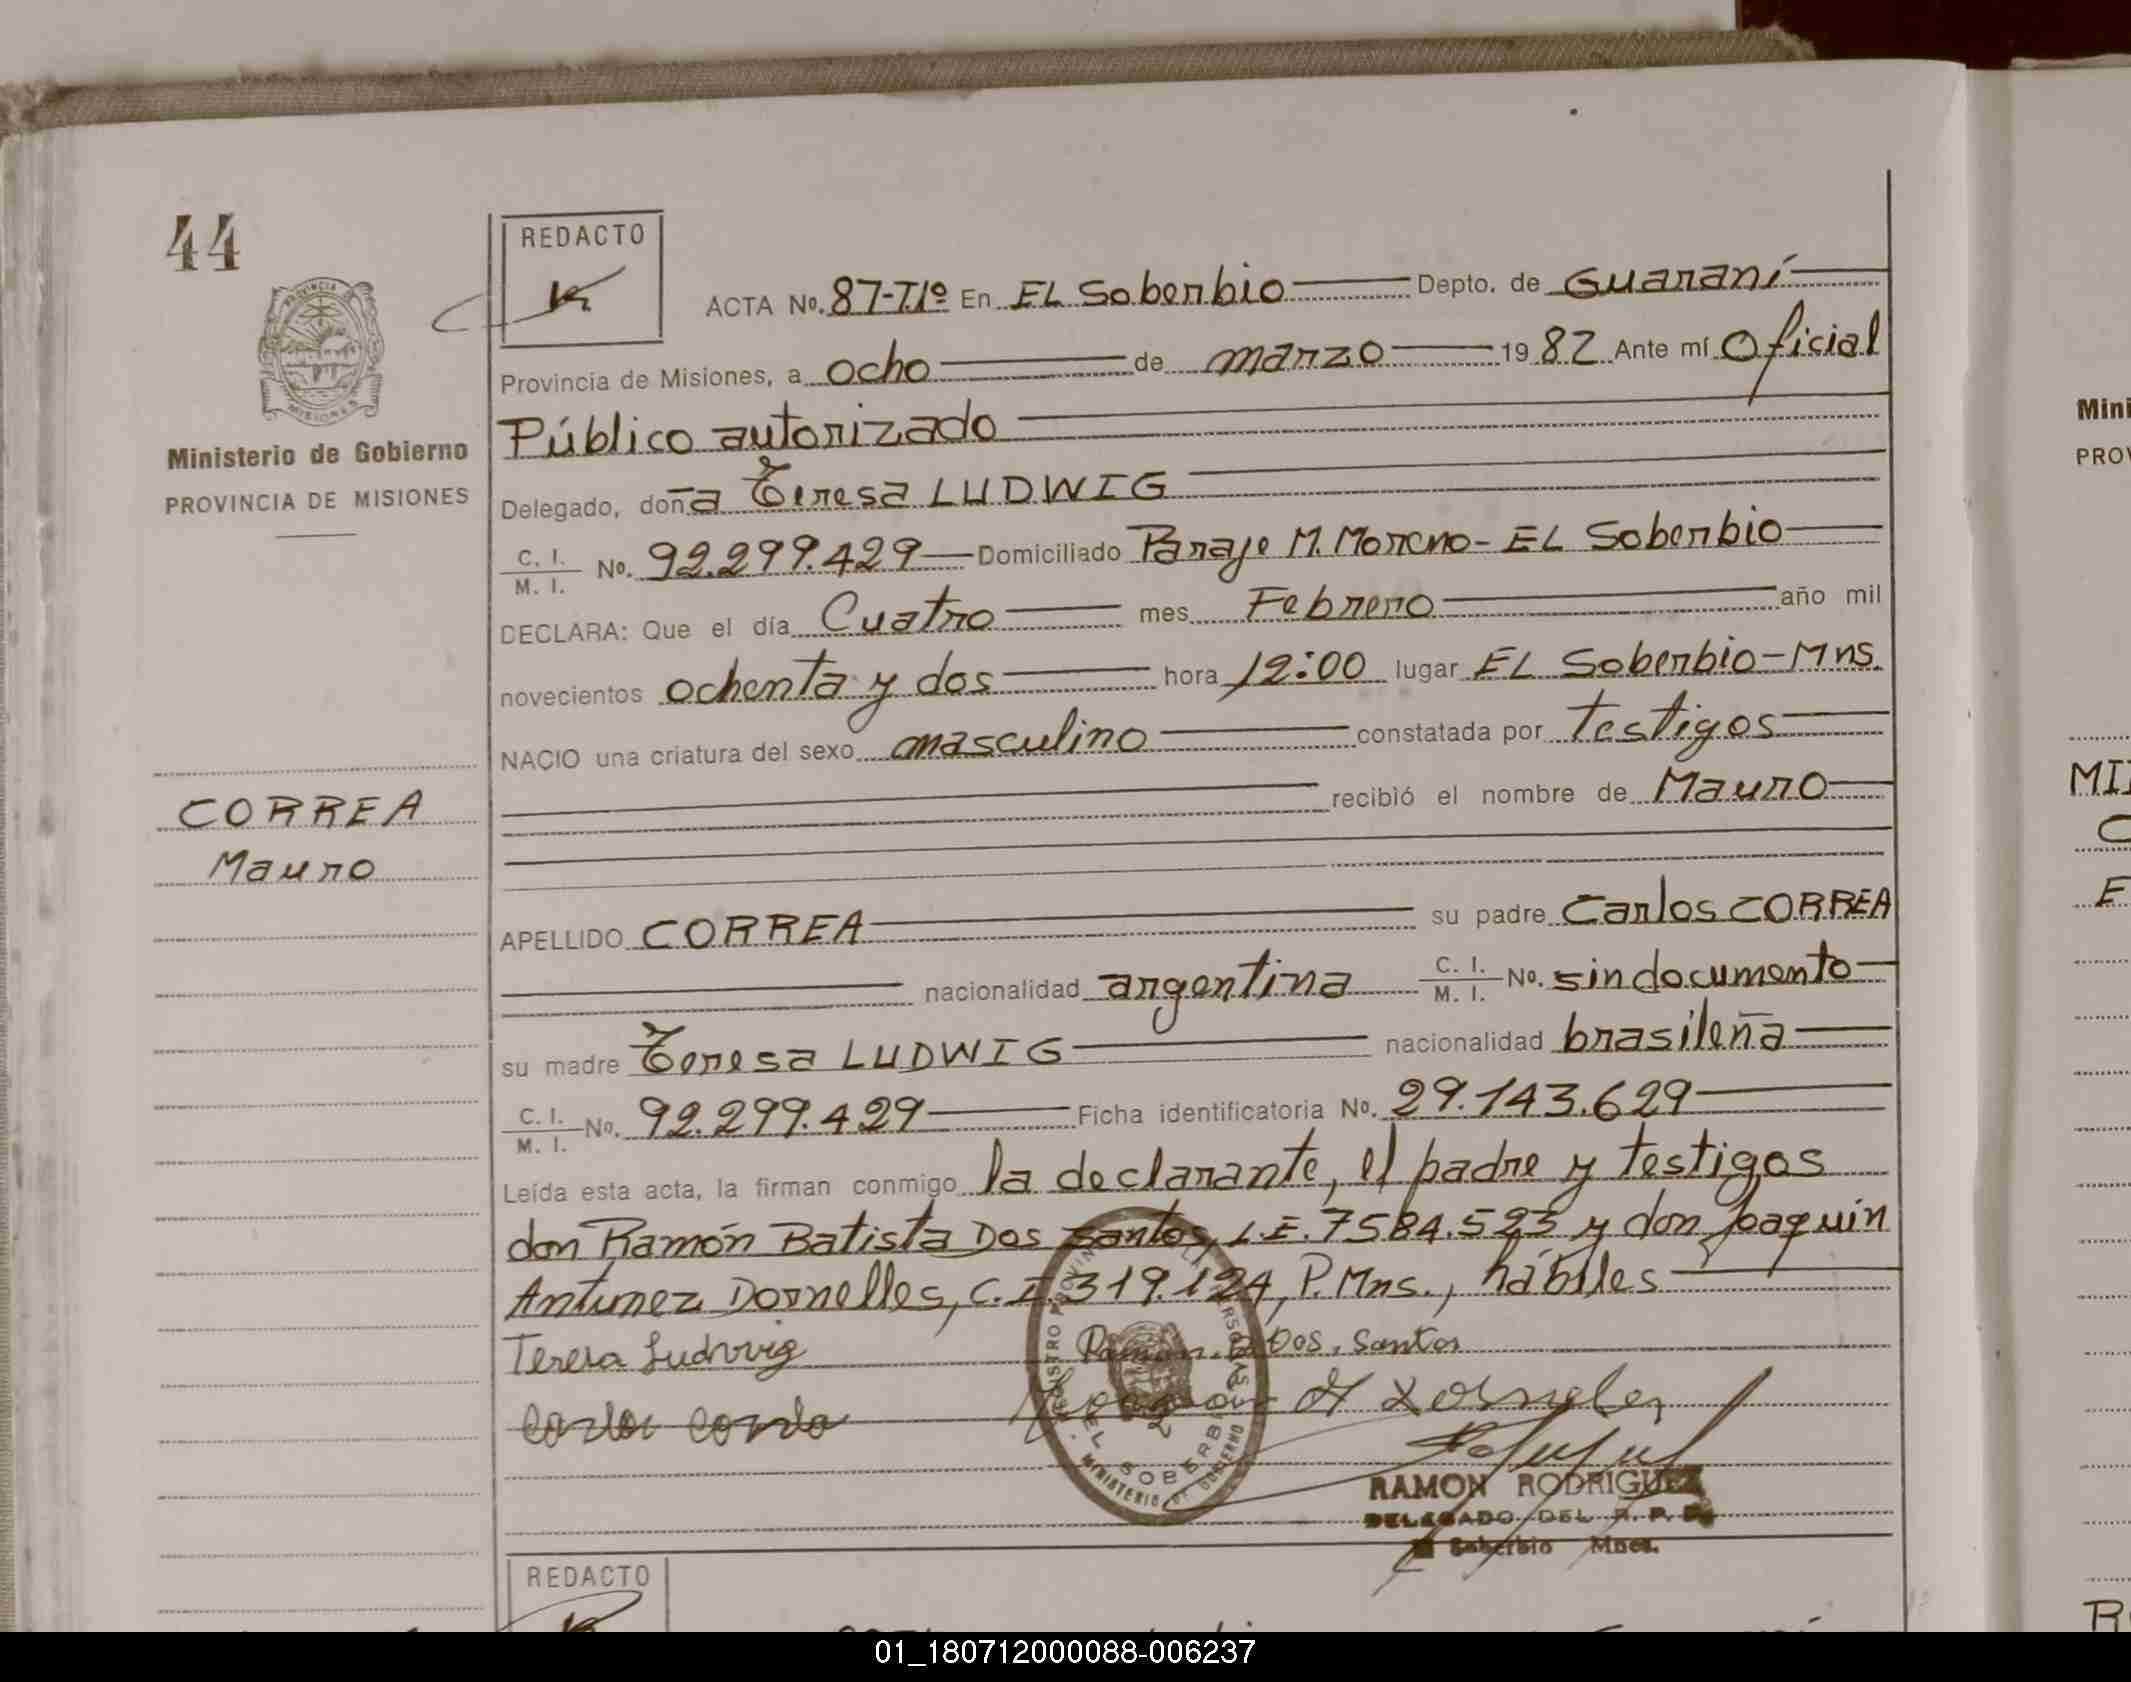 44
REDACTO
ACTA No. 87-T.1º En EL Soberbio Depto. de Guaraní
Provincia de Misiones, a ocho de marzo 1982 Ante mí Oficial
Público autorizado
Ministerio de Gobierno
PROVINCIA DE MISIONES
Delegado, doña Teresa LUDWIG
C. I. M. I. No. 92.299.429 Domiciliado Paraje M. Moreno - EL Soberbio
DECLARA: Que el día Cuatro mes Febrero año mil
novecientos ochenta y dos hora 12:00 lugar EL Soberbio-Mns.
NACIO una criatura del sexo masculino constatada por testigos
recibió el nombre de Mauro
CORREA
Mauro
APELLIDO CORREA su padre Carlos CORREA
nacionalidad argentina C. I. M. I. No. sin documento
su madre Teresa LUDWIG nacionalidad brasileña
C. I. M. I. No. 92.299.429 Ficha identificatoria No. 29.143.629
Leída esta acta, la firman conmigo la declarante, el padre y testigos
don Ramón Batista Dos Santos, L.E. 7584.523 y don Joaquin
Antunez Dornelles, C.I. 319.124, P. Mns., hábiles
Teresa Ludwig Ramon. B. Dos. Santos
EL SOBERBIO
MINISTERIO DE GOBIERNO
RAMON RODRIGUEZ
DELEGADO DEL R. P. P.
El Soberbio Mnes.
REDACTO
Mini
PROV
MII
C
E
R
01_180712000088-006237